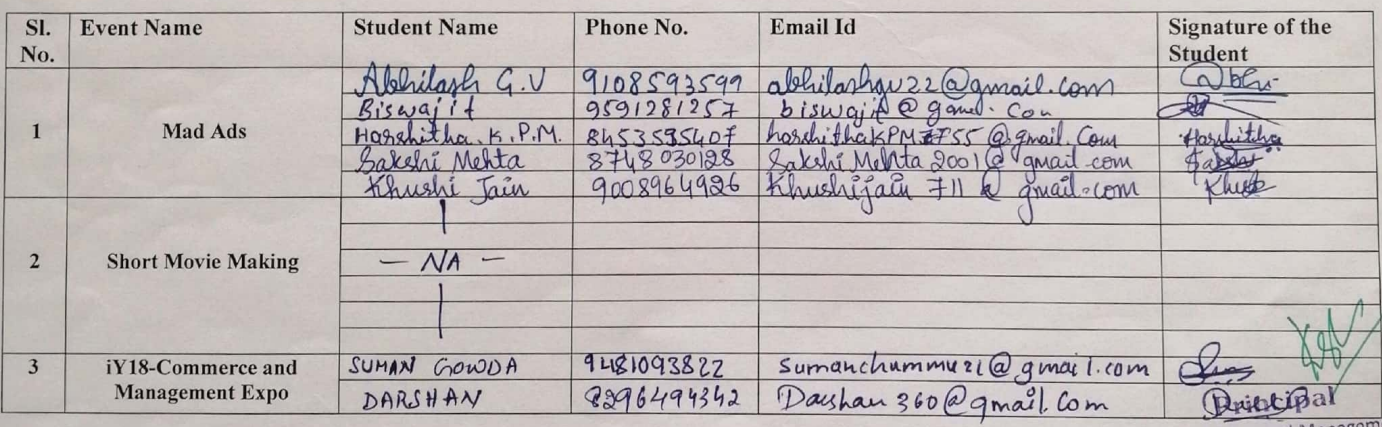 Sl. No. Event Name Student Name Phone No. Email Id Signature of the Student
1 Mad Ads
Abhilash G.V 9108593599 abhilashgv22@gmail.com Abhi
Biswajit 9591281257 biswajit@gamil.com
Harshitha.K.P.M. 8453595407 harshithaKPM7755@gmail.com Harshitha
Sakshi Mehta 8748030128 SakshiMehta2001@gmail.com
Khushi Jain 9008964926 Khushijain711@gmail.com
2 Short Movie Making
— NA —
3 iY18-Commerce and Management Expo
SUMAN GOWDA 9481093822 Sumanchummu21@gmail.com
DARSHAN 8296494342 Darshan360@gmail.com
Principal